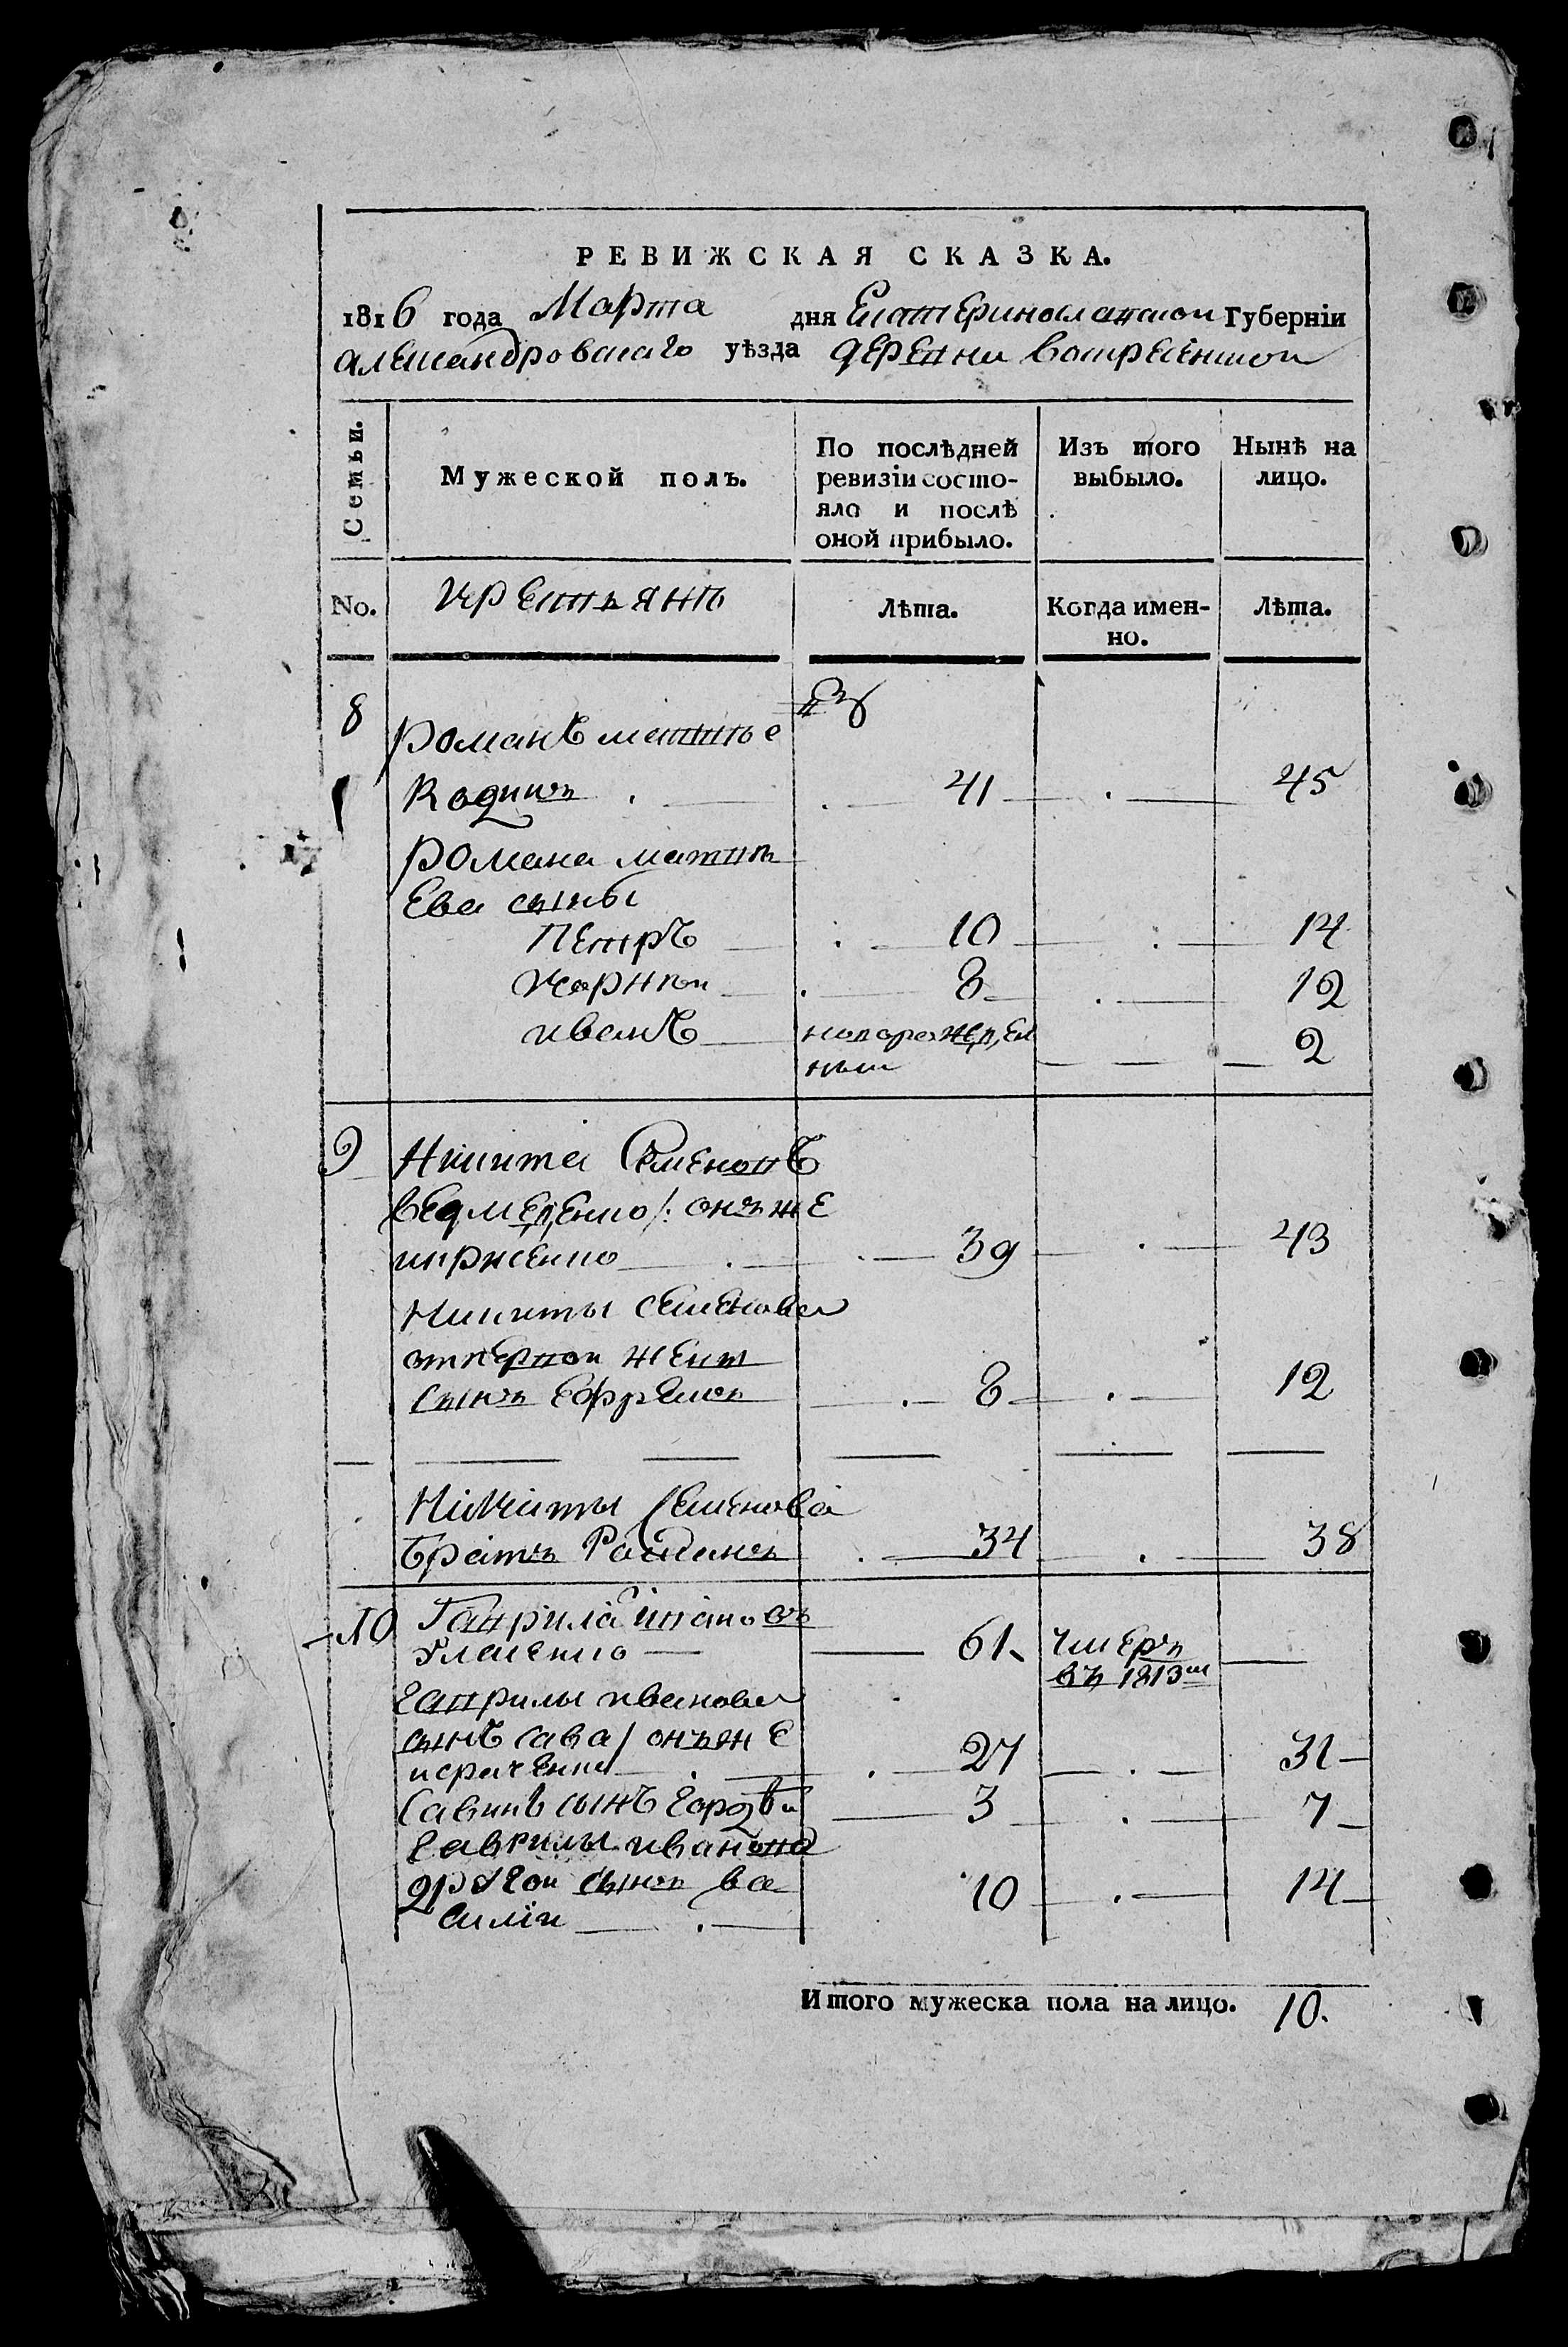 РЕВИЖСКАЯ СКАЗКА.
1816 года Марта дня Екатеринославской Губерніи
александровскаго уѣзда деревни воскресенской
Семьи.
Мужеской полъ.
По послѣдней ревизіи состояло и послѣ оной прибыло.
Изъ того выбыло.
Нынѣ на лицо.
No. крестьянѣ Лѣта. Когда именно. Лѣта.
8 романъ матвѣе
Кодинъ 41 45
романа матвѣ
Ева сыны
петръ 10 14
корнѣй 8 12
иванъ новорожден
ный 2
9 Никита Семеновъ
ведмеденко /: онъ же
кирисенко 39 43
Никиты Семенова
отпервой жены
сынъ Ефремъ 8 12
Никиты Семенова
братъ Романъ 34 38
10 Гаврила ивановъ
61 умеръ
въ 1813м
гаврилы иванова
сынъ сава / онъже
27 31
Савинъ сынъ гордѣй 3 7
гаврилы иванова
другой сынъ ва
силій 10 14
Итого мужеска пола на лицо. 10.